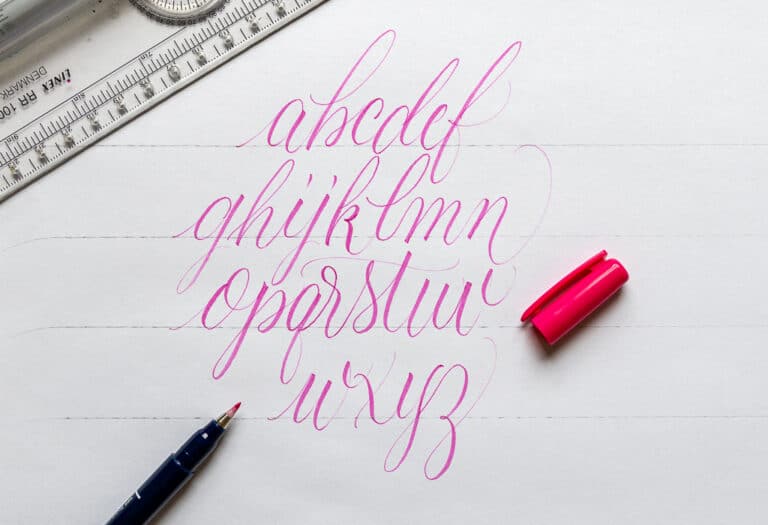 LINEX RR 100
DENMARK
abcdef
ghijklmn
opqrstuv
wxyz